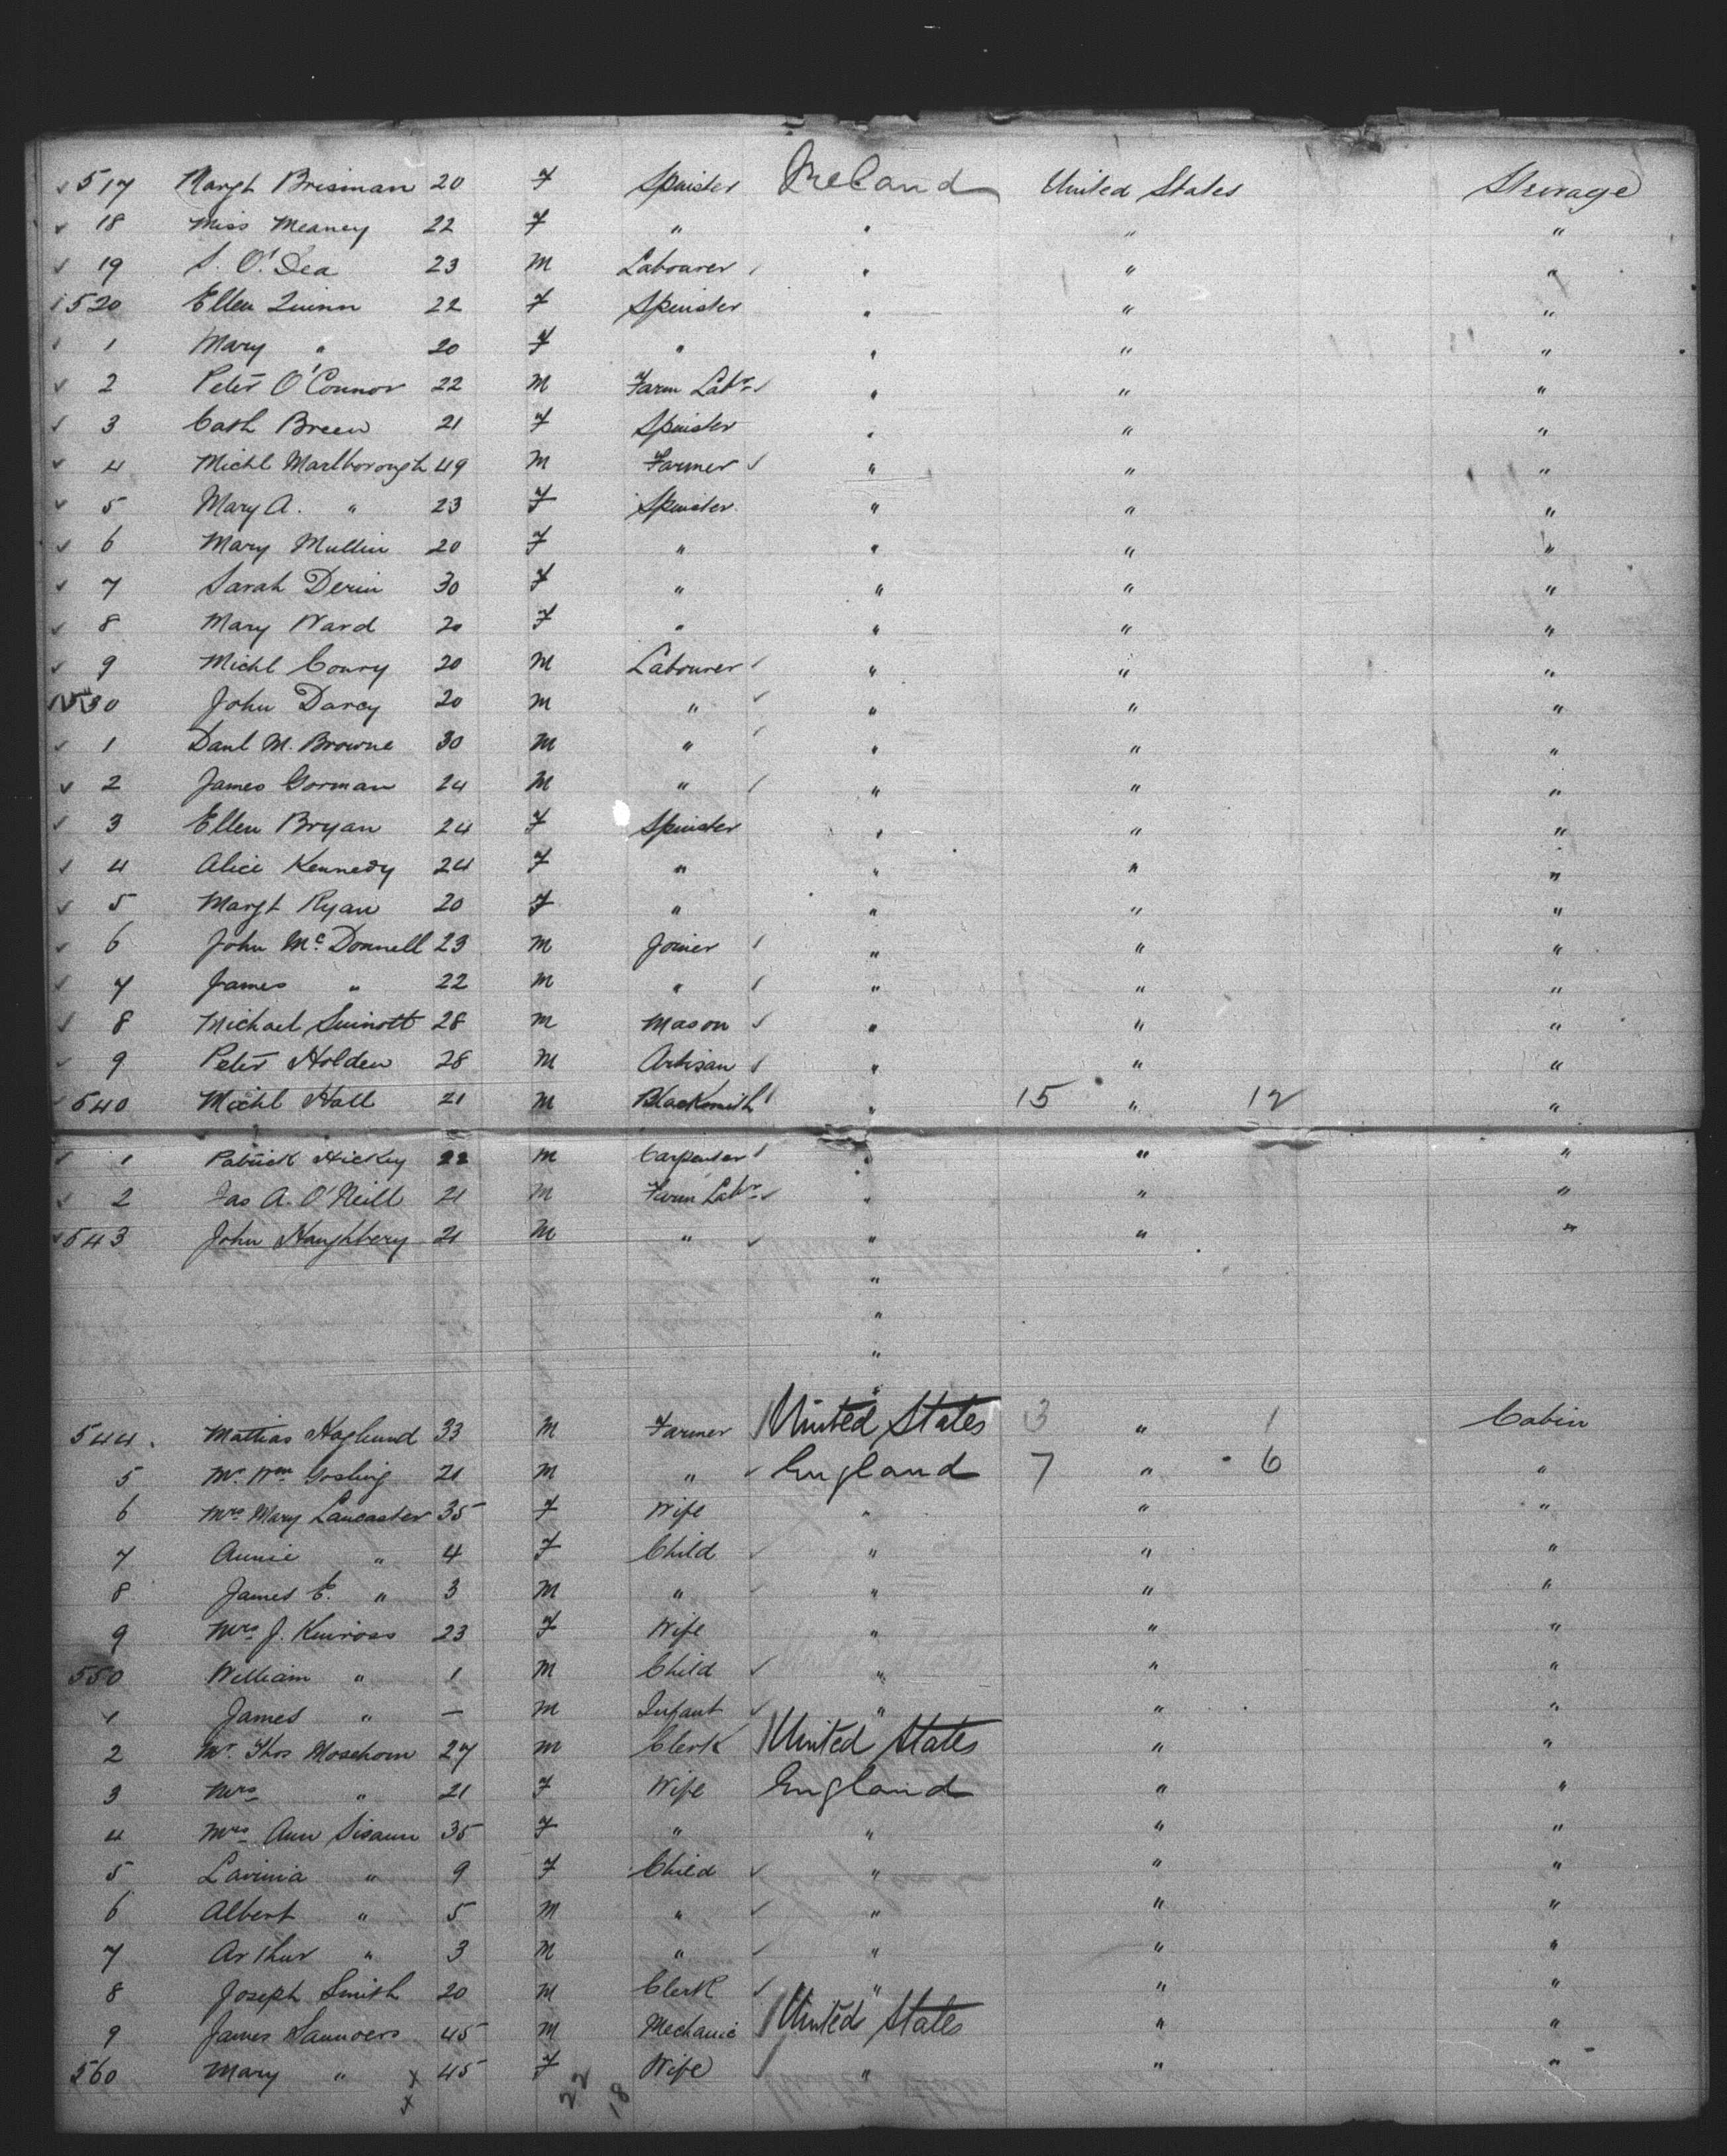 517 Margt Brisman 20 F Spinster Ireland United States Steerage
18 Miss Meaney 22 F " " " "
19 S. O'Dea 23 M Labourer " " "
520 Ellen Quinn 22 F Spinster " " "
1 Mary " 20 F " " " "
2 Peter O'Connor 22 M Farm Labr " " "
3 Cath Breen 21 F Spinster " " "
4 Michl Marlborough 49 M Farmer " " "
5 Mary A. " 23 F Spinster " " "
6 Mary Mullin 20 F " " " "
7 Sarah Derin 30 F " " " "
8 Mary Ward 20 F " " " "
9 Michl Conry 20 M Labourer " " "
530 John Darcy 20 M " " " "
1 Danl M. Browne 30 M " " " "
2 James Gorman 24 M " " " "
3 Ellen Bryan 24 F Spinster " " "
4 Alice Kennedy 24 F " " " "
5 Margt Ryan 20 F " " " "
6 John McDonnell 23 M Joiner " " "
7 James " 22 M " " " "
8 Michael Sinnott 28 M Mason " " "
9 Peter Holden 28 M Artisan " " "
540 Michl Hall 21 M Blacksmith " 15 " 12 "
1 Patrick Hickey 22 M Carpenter " " "
2 Jas A. O'Neill 21 M Farm Labr " " "
543 John Haughbery 21 M " " " "
"
"
"
"
544 Mattias Haglund 33 M Farmer United States 3 " 1 Cabin
5 Mr. Wm Gosling 21 M " England 7 " 6 "
6 Mrs Mary Lancaster 35 F Wife " " "
7 Annie " 4 F Child " " "
8 James E. " 3 M " " " "
9 Mrs J. Kinross 23 F Wife " " "
550 William " 1 M Child " " "
1 James " — M Infant " " "
2 Mr. Thos Mosehorn 27 M Clerk United States " "
3 Mrs " 21 F Wife England " "
4 Mrs Ann Sisann 35 F " " " "
5 Lavinia " 9 F Child " " "
6 Albert " 5 M " " " "
7 Arthur " 3 M " " " "
8 Joseph Smith 20 M Clerk " " "
9 James Saunders 45 M Mechanic United States " "
560 Mary " x 45 F Wife " " "
x 22 18